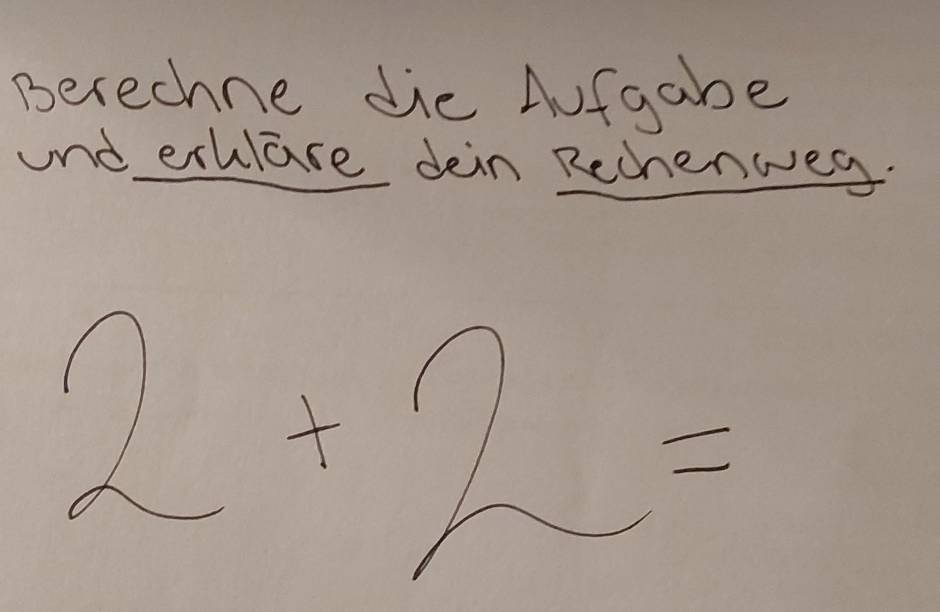 Berechne die Aufgabe
und erkläre dein Rechenweg.
2 + 2 =